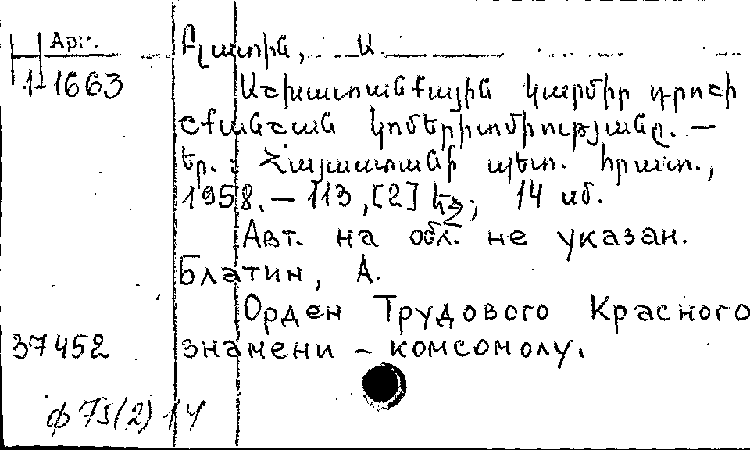 Арм.
Բլատին, Ա.
1-1663
Աշխատանքային կարմիր դրոշի
շքանշան կոմերիտմիությանը. —
Եր.: Հայպետհրատ պետ. հրատ.,
1958. — 113, [2] էջ; 14 սմ.
Авт. на обл. не указан.
Блатин, А.
Орден Трудового Красного
знамени – комсомолу.
37452
ф 75(2) 14